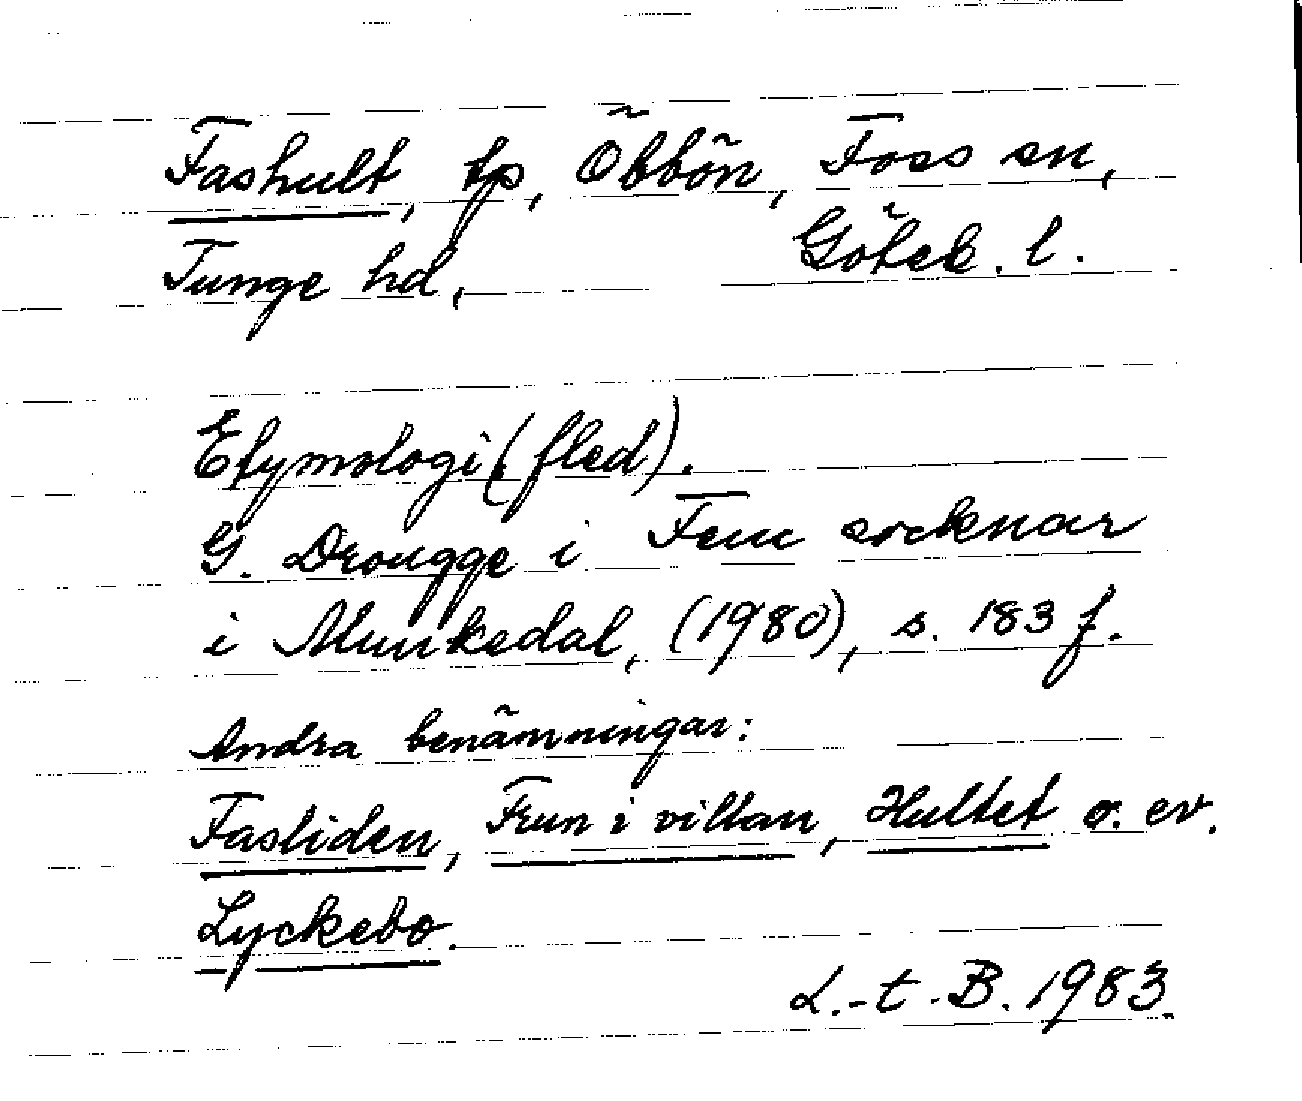 Fashult, tp, Öbbön, Foss sn,
Tunge hd, Göteb. l.
Etymologi (fled).
G. Drougge i Fem socknar
i Munkedal, (1980), s. 183 f.
Andra benämningar:
Fasliden, Frun i villan, Hultet o. ev.
Lyckebo.
L.-t. B. 1983.